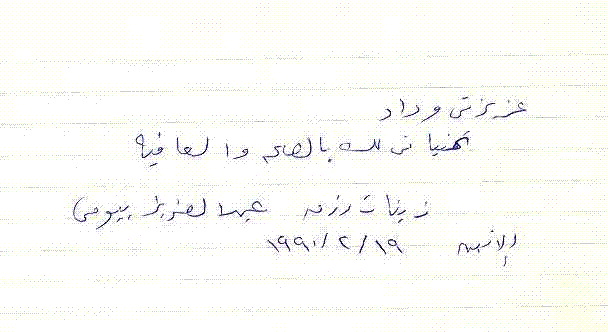 عزيزتى وداد
تمنياتى لك بالصحه والعافيه
زينات رزق عبد العزيز بيومى
الاثنين ١٩٩٠/٢/١٩